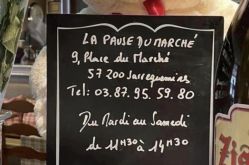 LA PAUSE DU MARCHÉ
9, Place du Marché
57200 Sarreguemines
Tel: 03.87.95.59.80
Du Mardi au Samedi
de 11H30 à 14H30